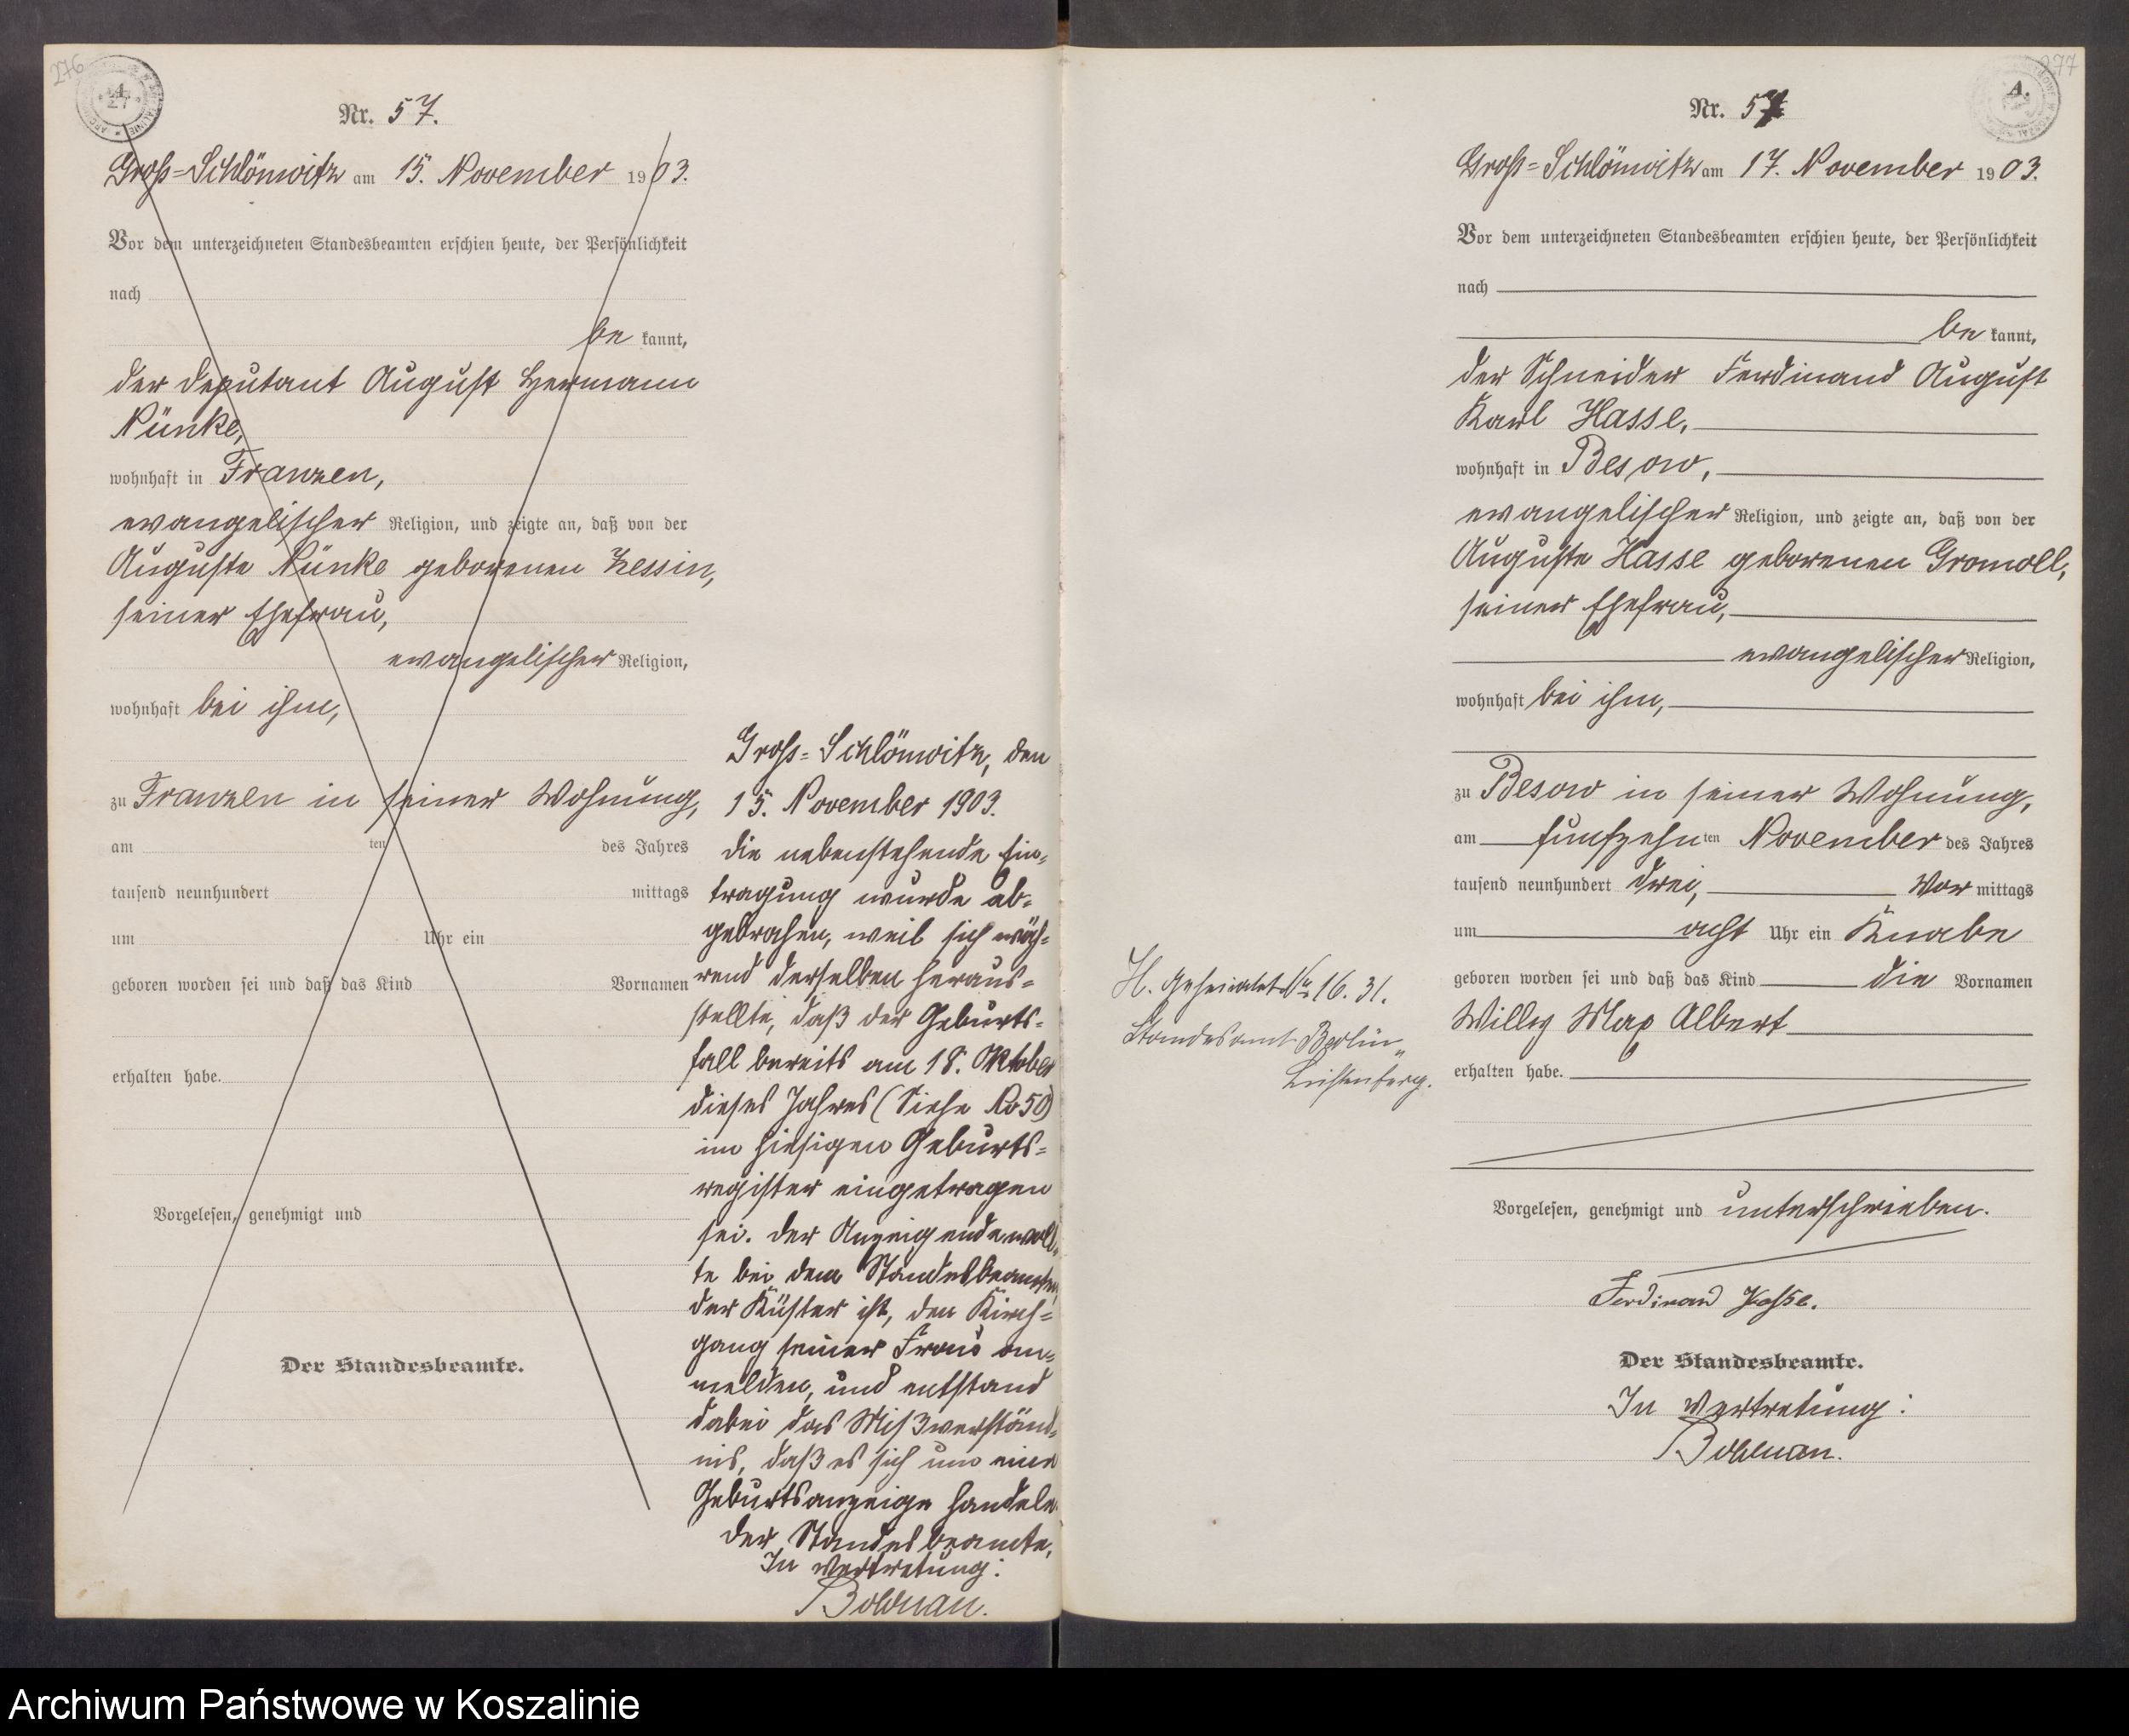 276
Nr. 57.
Groß=Schlönwitz am 15. November 1903.
Vor dem unterzeichneten Standesbeamten erschien heute, der Persönlichkeit
nach
be kannt,
der Deputant August Hermann
Nünke,
wohnhaft in Franzen,
evangelischer Religion, und zeigte an, daß von der
Auguste Nünke geborenen Zessin,
seiner Ehefrau,
evangelischer Religion,
wohnhaft bei ihm,
zu Franzen in seiner Wohnung,
am ten des Jahres
tausend neunhundert mittags
um Uhr ein
geboren worden sei und daß das Kind Vornamen
erhalten habe.
Vorgelesen, genehmigt und
Der Standesbeamte.
Groß=Schlönwitz, den
15. November 1903.
Die nebenstehende Ein=
tragung wurde ab=
gebrochen, weil sich wäh=
rend derselben heraus=
stellte, daß der Geburts=
fall bereits am 18. Oktober
dieses Jahres (Siehe No 50)
im hiesigen Geburts=
register eingetragen
sei. Der Anzeigende woll=
te bei dem Standesbeamten,
der Küster ist, den Kirch=
gang seiner Frau an=
melden, und entstand
dabei das Mißverständ=
nis, daß es sich um eine
Geburtsanzeige handele.
Der Standesbeamte.
In Vertretung:
Bolduan.
277
A.
Nr. 57
Groß=Schlönwitz am 17. November 1903.
Vor dem unterzeichneten Standesbeamten erschien heute, der Persönlichkeit
nach
be kannt,
der Schneider Ferdinand August
Karl Hasse,
wohnhaft in Besow,
evangelischer Religion, und zeigte an, daß von der
Auguste Hasse geborenen Gromoll,
seiner Ehefrau,
evangelischer Religion,
wohnhaft bei ihm,
zu Besow in seiner Wohnung,
am fünfzehnten November des Jahres
tausend neunhundert drei, Vor mittags
um acht Uhr ein Knabe
geboren worden sei und daß das Kind die Vornamen
Willy Max Albert
erhalten habe.
Vorgelesen, genehmigt und unterschrieben.
Ferdinand Hasse.
Der Standesbeamte.
In Vertretung:
Bolduan.
H. Geheiratet Nr. 16. 31.
Standesamt Berlin=
Lichtenberg.
Archiwum Państwowe w Koszalinie